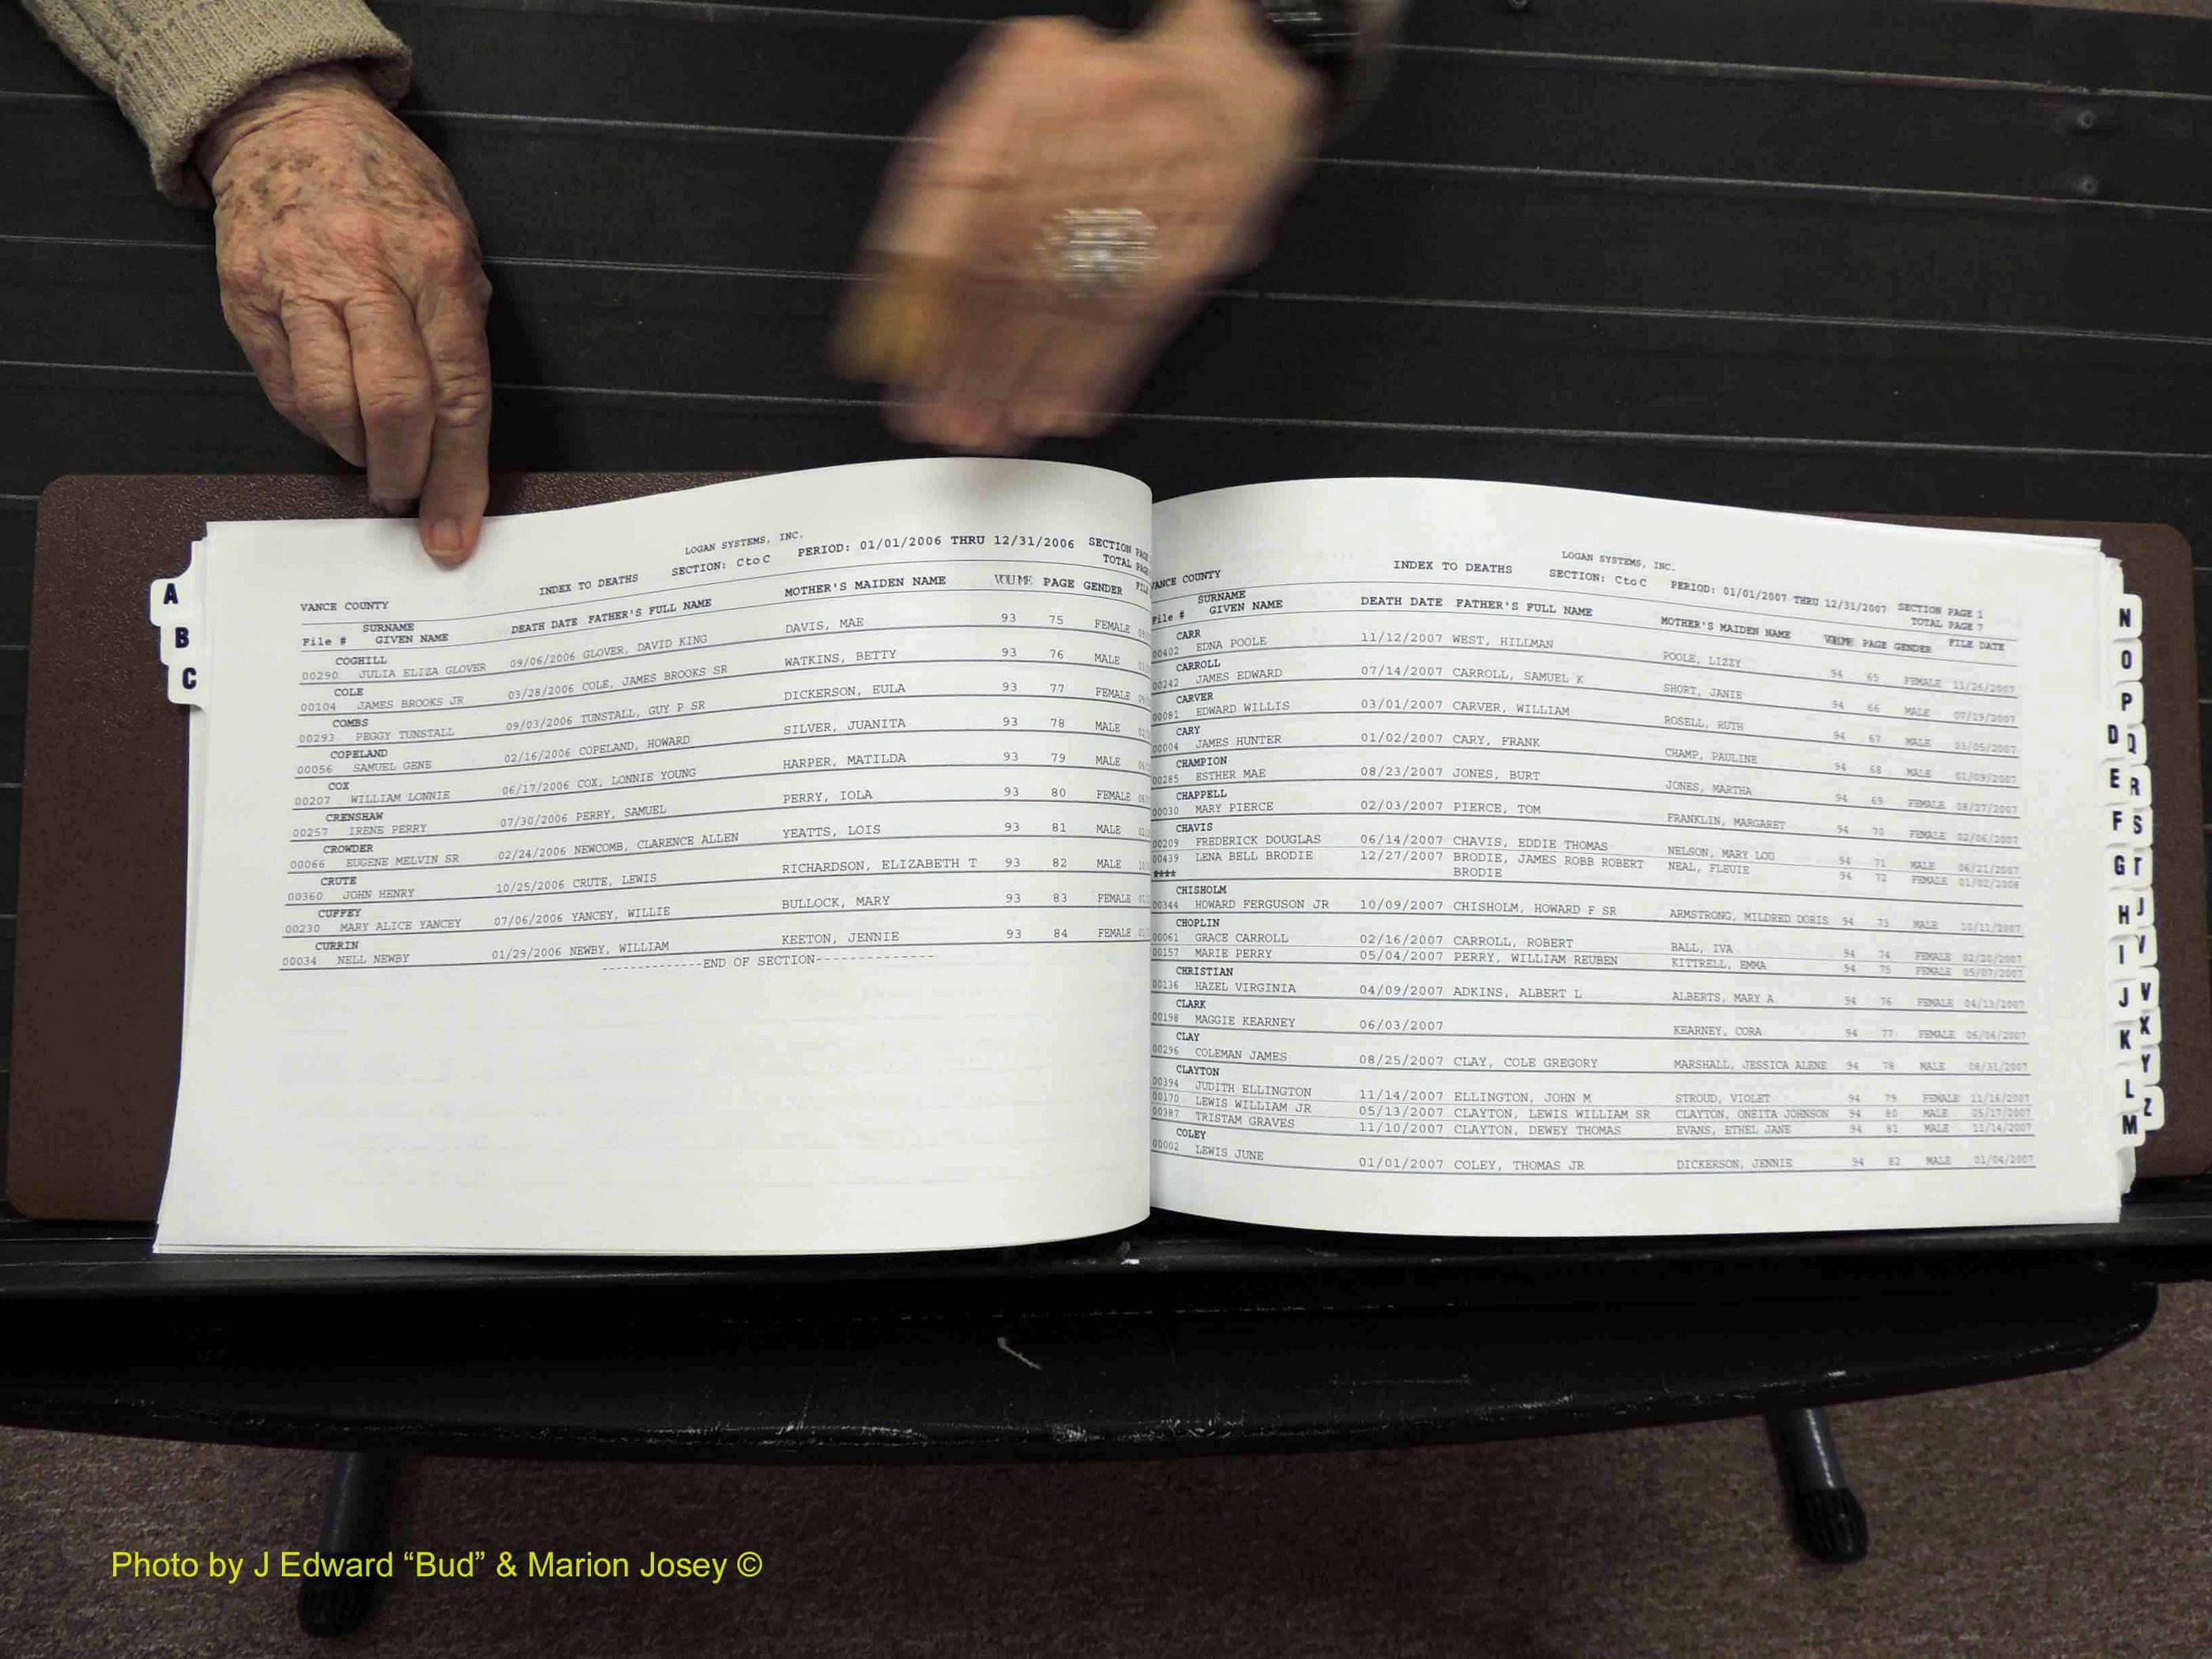 LOGAN SYSTEMS, INC.
VANCE COUNTY INDEX TO DEATHS SECTION: C to C PERIOD: 01/01/2006 THRU 12/31/2006 SECTION PAGE
TOTAL PAGE
SURNAME
File # GIVEN NAME DEATH DATE FATHER'S FULL NAME MOTHER'S MAIDEN NAME VOLUME PAGE GENDER
COGHILL
00290 JULIA ELIZA GLOVER 09/06/2006 GLOVER, DAVID KING DAVIS, MAE 93 75 FEMALE
COLE
00104 JAMES BROOKS JR 03/28/2006 COLE, JAMES BROOKS SR WATKINS, BETTY 93 76 MALE
COMBS
00293 PEGGY TUNSTALL 09/03/2006 TUNSTALL, GUY P SR DICKERSON, EULA 93 77 FEMALE
COPELAND
00056 SAMUEL GENE 02/16/2006 COPELAND, HOWARD SILVER, JUANITA 93 78 MALE
COX
00207 WILLIAM LONNIE 06/17/2006 COX, LONNIE YOUNG HARPER, MATILDA 93 79 MALE
CRENSHAW
00257 IRENE PERRY 07/30/2006 PERRY, SAMUEL PERRY, IOLA 93 80 FEMALE
CROWDER
00066 EUGENE MELVIN SR 02/24/2006 NEWCOMB, CLARENCE ALLEN YEATTS, LOIS 93 81 MALE
CRUTE
00360 JOHN HENRY 10/25/2006 CRUTE, LEWIS RICHARDSON, ELIZABETH T 93 82 MALE
CUFFEY
00230 MARY ALICE YANCEY 07/06/2006 YANCEY, WILLIE BULLOCK, MARY 93 83 FEMALE
CURRIN
00034 NELL NEWBY 01/29/2006 NEWBY, WILLIAM KEETON, JENNIE 93 84 FEMALE
-------------END OF SECTION---------------
A
B
C
LOGAN SYSTEMS, INC.
VANCE COUNTY INDEX TO DEATHS SECTION: C to C PERIOD: 01/01/2007 THRU 12/31/2007 SECTION PAGE 1
TOTAL PAGE 7
SURNAME
File # GIVEN NAME DEATH DATE FATHER'S FULL NAME MOTHER'S MAIDEN NAME VOLUME PAGE GENDER FILE DATE
CARR
00402 EDNA POOLE 11/12/2007 WEST, HILLMAN POOLE, LIZZY 94 65 FEMALE 11/26/2007
CARROLL
00242 JAMES EDWARD 07/14/2007 CARROLL, SAMUEL K SHORT, JANIE 94 66 MALE 07/19/2007
CARVER
00081 EDWARD WILLIS 03/01/2007 CARVER, WILLIAM ROSELL, RUTH 94 67 MALE 03/05/2007
CARY
00004 JAMES HUNTER 01/02/2007 CARY, FRANK CHAMP, PAULINE 94 68 MALE 01/09/2007
CHAMPION
00285 ESTHER MAE 08/23/2007 JONES, BURT JONES, MARTHA 94 69 FEMALE 08/27/2007
CHAPPELL
00030 MARY PIERCE 02/03/2007 PIERCE, TOM FRANKLIN, MARGARET 94 70 FEMALE 02/06/2007
CHAVIS
00209 FREDERICK DOUGLAS 06/14/2007 CHAVIS, EDDIE THOMAS NELSON, MARY LOU 94 71 MALE 06/21/2007
00439 LENA BELL BRODIE 12/27/2007 BRODIE, JAMES ROBB ROBERT NEAL, FLEUIE 94 72 FEMALE 01/02/2008
**** BRODIE
CHISHOLM
00344 HOWARD FERGUSON JR 10/09/2007 CHISHOLM, HOWARD F SR ARMSTRONG, MILDRED DORIS 94 73 MALE 10/11/2007
CHOPLIN
00061 GRACE CARROLL 02/16/2007 CARROLL, ROBERT BALL, IVA 94 74 FEMALE 02/20/2007
00157 MARIE PERRY 05/04/2007 PERRY, WILLIAM REUBEN KITTRELL, EMMA 94 75 FEMALE 05/07/2007
CHRISTIAN
00136 HAZEL VIRGINIA 04/09/2007 ADKINS, ALBERT L ALBERTS, MARY A 94 76 FEMALE 04/13/2007
CLARK
00198 MAGGIE KEARNEY 06/03/2007 KEARNEY, CORA 94 77 FEMALE 06/06/2007
CLAY
00296 COLEMAN JAMES 08/25/2007 CLAY, COLE GREGORY MARSHALL, JESSICA ALENE 94 78 MALE 08/31/2007
CLAYTON
00394 JUDITH ELLINGTON 11/14/2007 ELLINGTON, JOHN M STROUD, VIOLET 94 79 FEMALE 11/16/2007
00170 LEWIS WILLIAM JR 05/13/2007 CLAYTON, LEWIS WILLIAM SR CLAYTON, ONEITA JOHNSON 94 80 MALE 05/17/2007
00387 TRISTAM GRAVES 11/10/2007 CLAYTON, DEWEY THOMAS EVANS, ETHEL JANE 94 81 MALE 11/14/2007
COLEY
00002 LEWIS JUNE 01/01/2007 COLEY, THOMAS JR DICKERSON, JENNIE 94 82 MALE 01/04/2007
N
O
P
D Q
E R
F S
G T
H
I
J V
K X
Y
L Z
M
Photo by J Edward “Bud” & Marion Josey ©